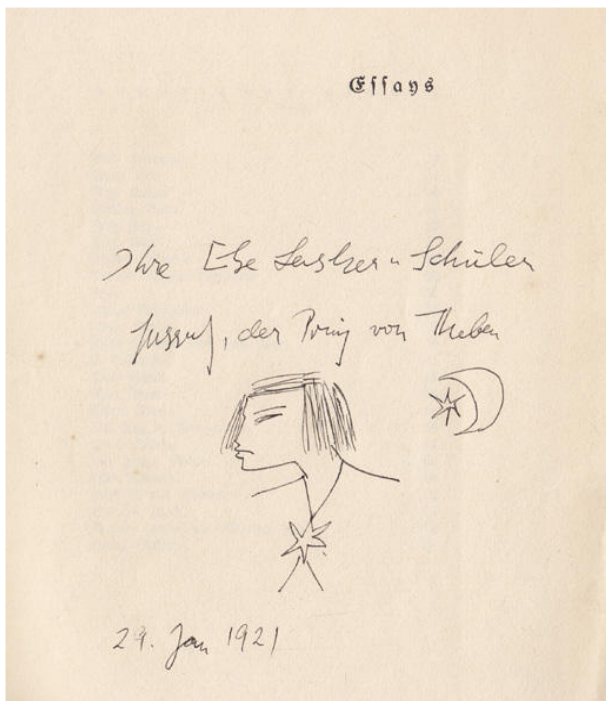 Essays
Ihre Else Lasker-Schüler
Jussuf, der Prinz von Theben
29. Jan 1921